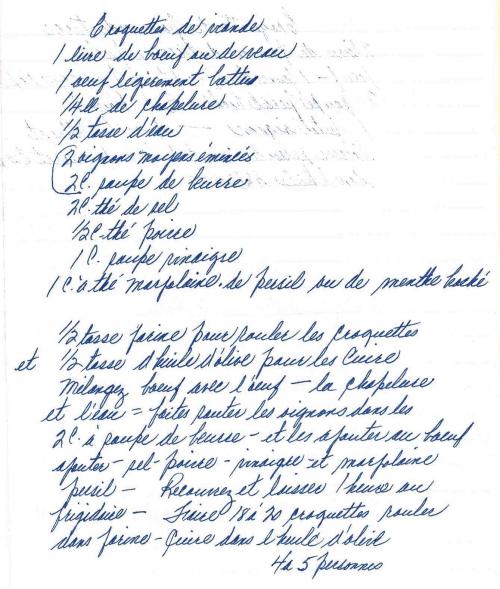 Croquettes de viande
1 livre de boeuf ou de veau
1 oeuf légèrement battu
1/4 lb de chapelure
1/2 tasse d'eau
2 oignons moyens émincés
2 C. soupe de beurre
2 C. thé de sel
1/2 C. thé poivre
1 C. soupe vinaigre
1 C. à thé marjolaine - de persil ou de menthe haché
1/2 tasse farine pour rouler les croquettes
et 1/2 tasse d'huile d'olive pour les Cuire
Mélangez boeuf avec l'oeuf - la chapelure
et l'eau = faites sauter les oignons dans les
2 C. à soupe de beurre - et les ajouter au boeuf
ajouter - sel - poivre - vinaigre - et marjolaine
persil - Recouvrez et laisser 1 heure au
frigidaire - Faire 18 à 20 croquettes rouler
dans farine - Cuire dans l'huile d'olive
4 à 5 personnes